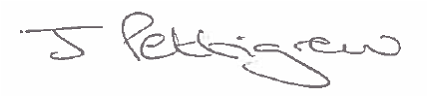 J Pettigrew